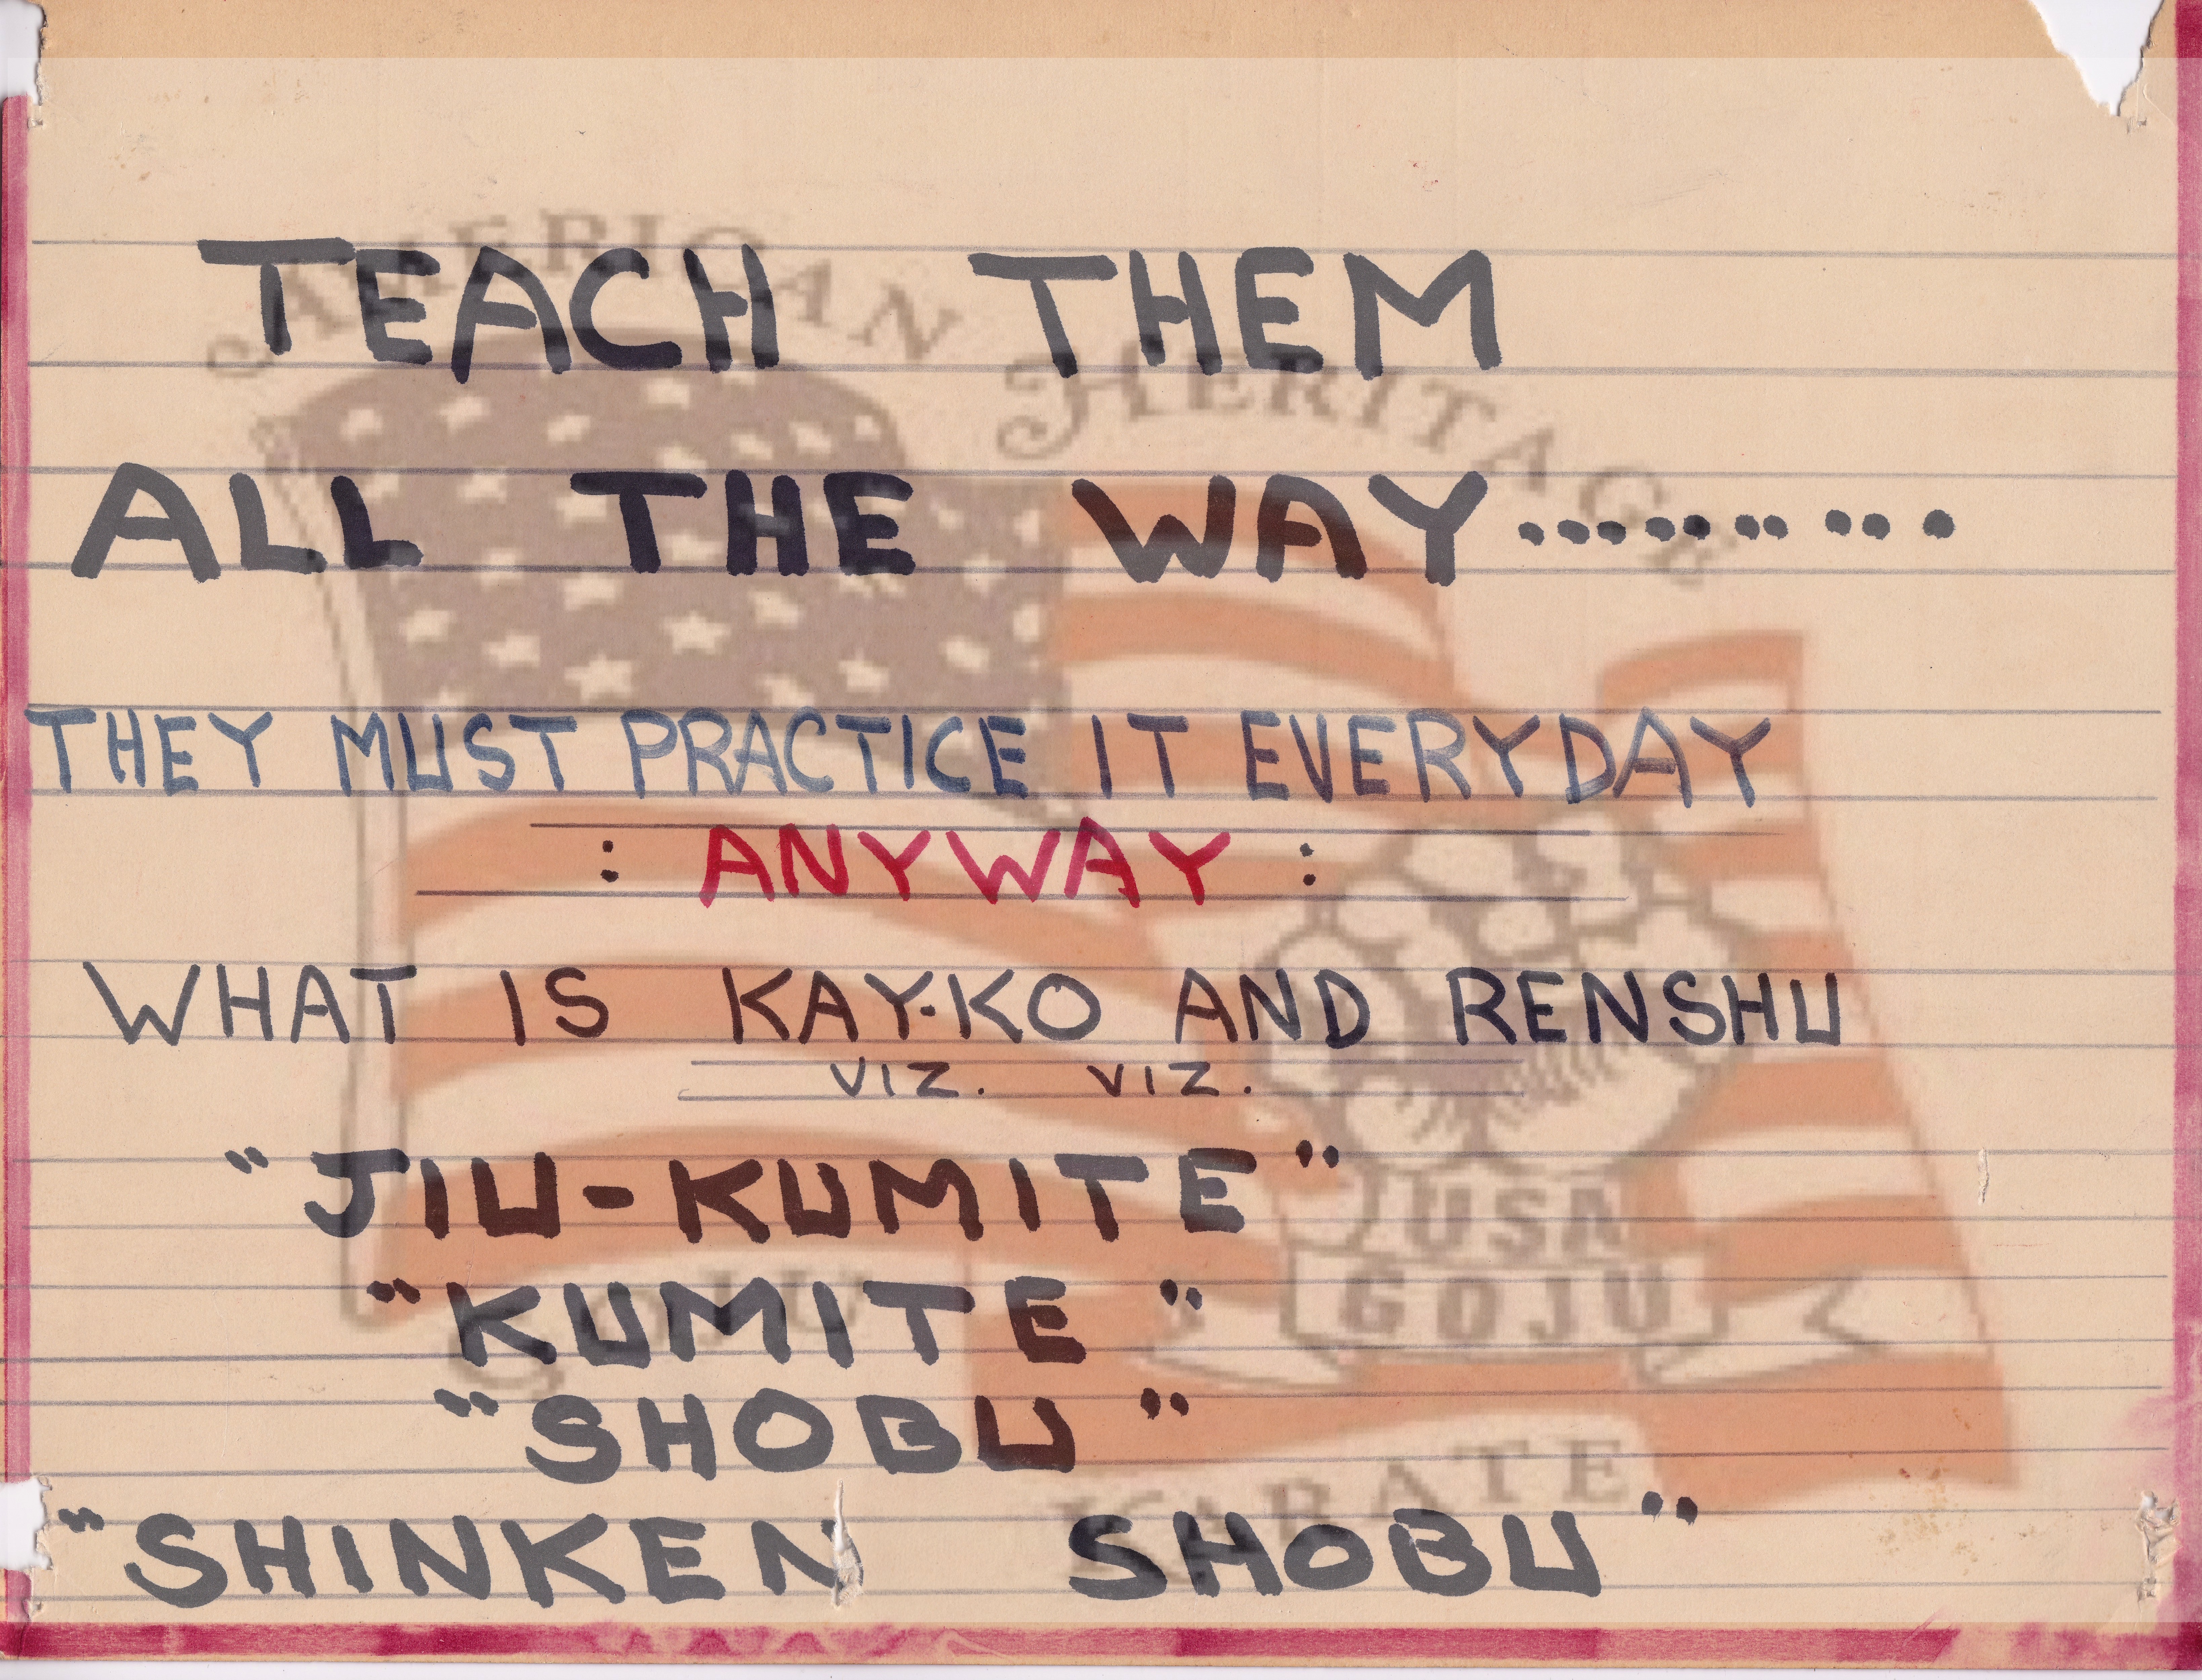 AMERICAN HERITAGE
TEACH THEM
ALL THE WAY..............
THEY MUST PRACTICE IT EVERYDAY
: ANYWAY :
WHAT IS KAY-KO AND RENSHU
VIZ. VIZ.
"JIU-KUMITE"
USA
GOJU
"KUMITE"
GOJU
"SHOBU"
KARATE
"SHINKEN SHOBU"